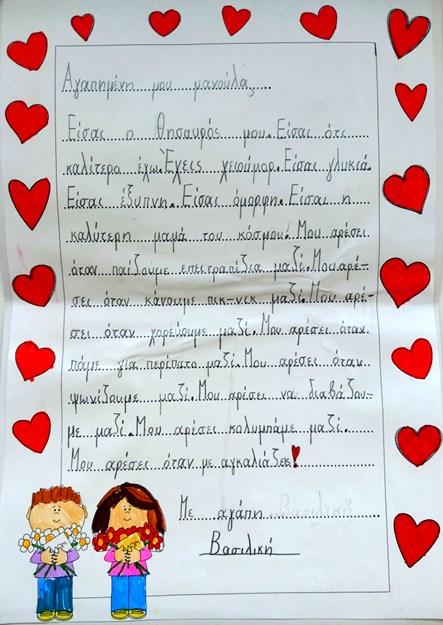 Αγαπημένη μου μανούλα,
Είσαι ο θησαυρός μου. Είσαι ότι
καλίτερο έχω. Έχεις χειούμορ. Είσαι γλυκιά.
Είσαι έξυπνη. Είσαι όμορφη. Είσαι η
καλύτερη μαμά του κόσμου. Μου αρέσει
όταν παίζουμε επειτραπέζια μαζί. Μου αρέ-
σει όταν κάνουμε πικ-νικ μαζί. Μου αρέ-
σει όταν χορεύουμε μαζί. Μου αρέσει όταν
πάμε για περίπατο μαζί. Μου αρέσει όταν
ψωνίζουμε μαζί. Μου αρέσει να διαβάζου-
με μαζί. Μου αρέσει κολυμπάμε μαζί.
Μου αρέσει όταν με αγκαλιάζεις!
Με αγάπη Βασιλική
Βασιλική